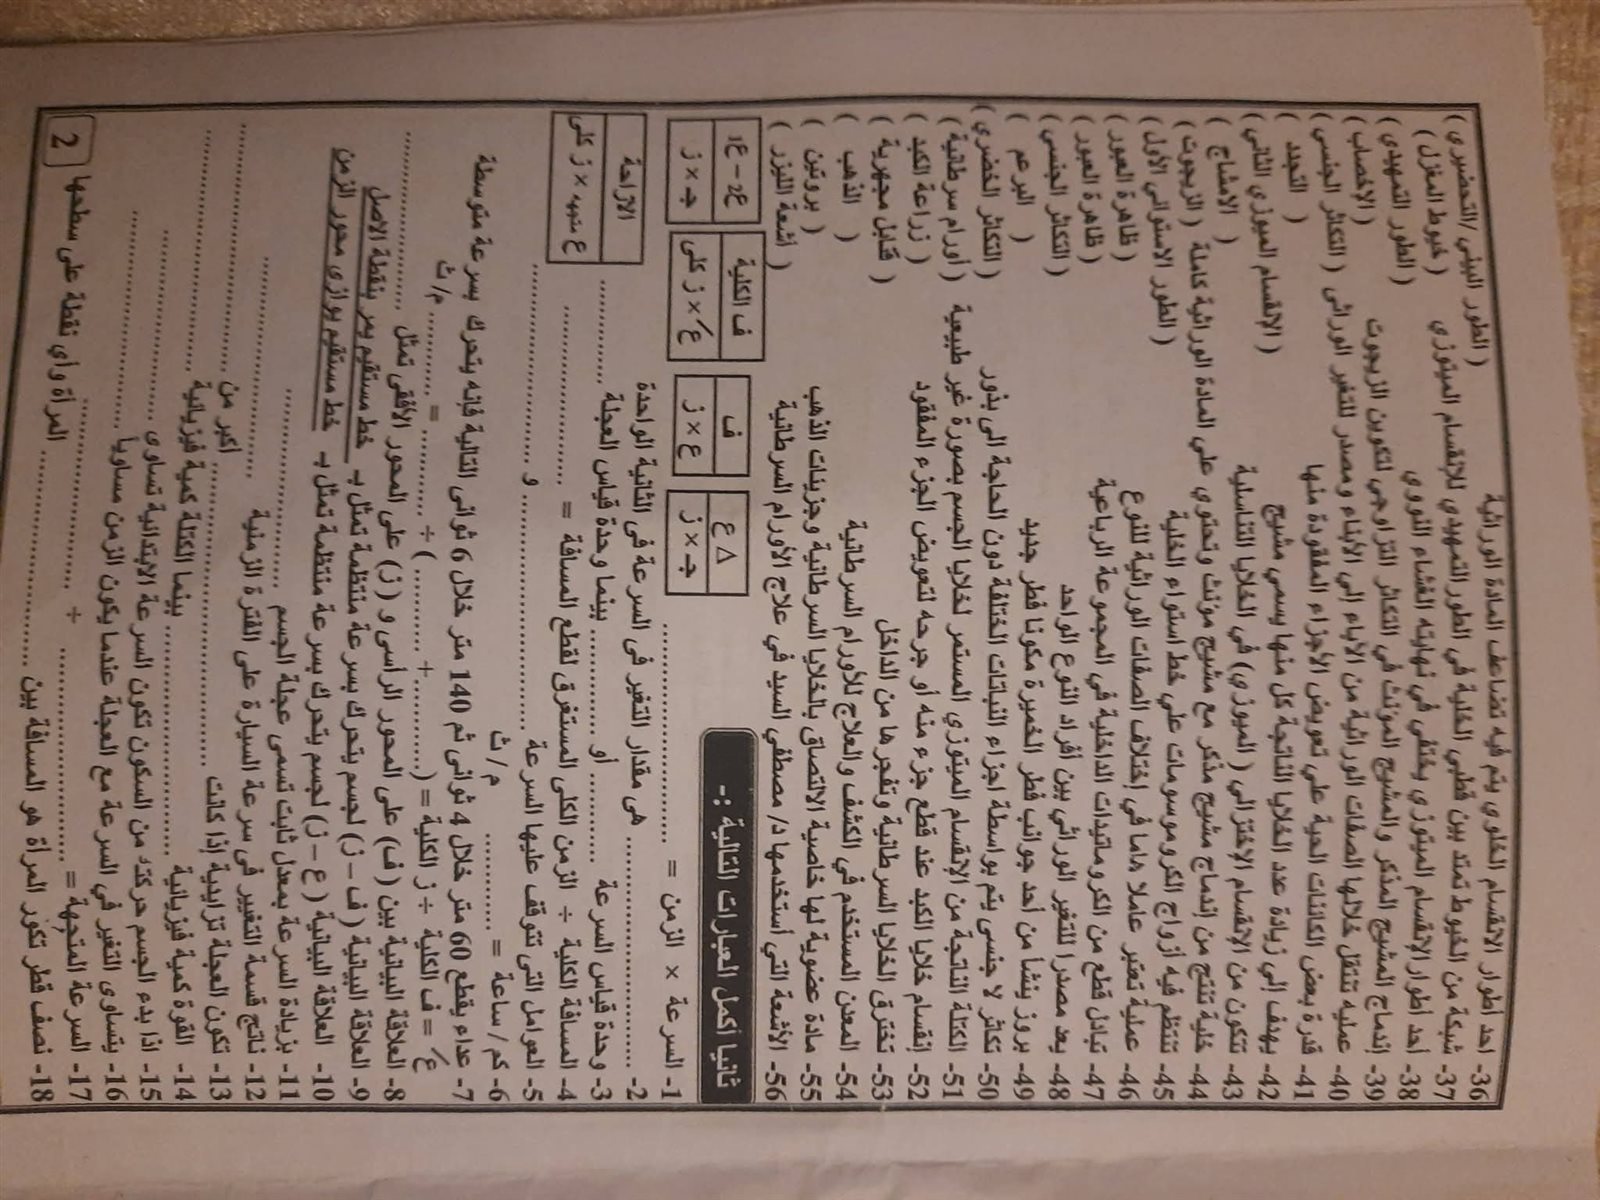 36- احد أطوار الانقسام الخلوي يتم فيه تضاعف المادة الوراثية ( الطور البيني /التحضيري )
37- شبكة من الخيوط تمتد بين قطبي الخلية في الطور التمهيدي للإنقسام الميتوزي ( خيوط المغزل )
38- أحد أطوار الإنقسام الميتوزي يختفي في نهايته الغشاء النووي ( الطور التمهيدي )
39- إندماج المشيج المذكر والمشيج المؤنث في التكاثر التزاوجي لتكوين الزيجوت ( الإخصاب )
40- عمليه تنتقل خلالها الصفات الوراثية من الأباء إلي الأبناء ومصدر للتغير الوراثى ( التكاثر الجنسى )
41- قدرة بعض الكائنات الحية علي تعويض الأجزاء المفقودة منها ( التجدد )
42- يهدف إلي زيادة عدد الخلايا الناتجة كل منها يسمي مشيج ( الإنقسام الميوزي الثانى )
43- تتكون من الإنقسام الإختزالي ( الميوزي) في الخلايا التناسلية ( الامشاج )
44- خلية تنتج من إندماج مشيج مذكر مع مشيج مؤنث وتحتوي علي المادة الوراثية كاملة ( الزيجوت )
45- تنتظم فيه أزواج الكروموسومات علي خط استواء الخلية ( الطور الاستوائي الأول )
46- عملية تعتبر عاملا هاما في إختلاف الصفات الوراثية للنوع ( ظاهرة العبور )
47- تبادل قطع من الكروماتيدات الداخلية في المجموعة الرباعية ( ظاهرة العبور )
48- يعد مصدرا للتغير الوراثي بين أفراد النوع الواحد ( التكاثر الجنسى )
49- بروز ينشأ من أحد جوانب فطر الخميرة مكونا فطر جديد ( البرعم )
50- تكاثر لا جنسى يتم بواسطة اجزاء النباتات الختلفة دون الحاجة الى بذور ( التكاثر الخضري )
51- الكتلة الناتجة من الإنقسام الميتوزي المستمر لخلايا الجسم بصورة غير طبيعية ( أورام سرطانية )
52- إنقسام خلايا الكبد عند قطع جزء منه أو جرحه لتعويض الجزء المفقود ( زراعة الكبد )
53- تخترق الخلايا السرطانية وتفجرها من الداخل ( قنابل مجهرية )
54- المعدن المستخدم في الكشف والعلاج للأورام السرطانية ( الذهب )
55- مادة عضوية لها خاصية الالتصاق بالخلايا السرطانية وجزيئات الذهب ( بروتين )
56- الأشعة التي أستخدمها د/ مصطفي السيد في علاج الأورام السرطانية ( أشعة الليزر )
ثانيا أكمل العبارات التالية :-
Δ ع
جـ × ز
ف
ع × ز
ف الكلية
ع/ × ز كلى
ع2 – ع1
جـ × ز
1- السرعة × الزمن = ..............................
2- .............................. هى مقدار التغير فى السرعة فى الثانية الواحدة
3- وحدة قياس السرعة .......... أو .......... بينما وحدة قياس العجلة ..............
الازاحة
ع متجهه × ز كلى
4- المسافة الكلية ÷ الزمن الكلى المستغرق لقطع المسافة = ........................
5- العوامل التى تتوقف عليها السرعة ........................ و ........................
6- كم / ساعة = .............. م / ث
7- عداء يقطع 60 متر خلال 4 ثوانى ثم 140 متر خلال 6 ثوانى التالية فإنه يتحرك بسرعة متوسطة
ع/ = ف الكلية ÷ ز الكلية = (.......... + ..........) ÷ .......... = .......... م/ ث
8- العلاقة البيانية بين ( ف) على المحور الرأسى و ( ز) على المحور الأفقى تمثل ........................
9- العلاقة البيانية ( ف – ز) لجسم يتحرك بسرعة منتظمة تمثل بـ خط مستقيم يمر بنقطة الاصل
10- العلاقة البيانية ( ع – ز) لجسم يتحرك بسرعة منتظمة تمثل بـ خط مستقيم يوازى محور الزمن
11- بزيادة السرعة بمعدل ثابت تسمى عجلة الجسم ..............................
12- ناتج قسمة التغيير فى سرعة السيارة على الفترة الزمنية ..............................
13- تكون العجلة تزايدية إذا كانت .............................. أكبر من ..............................
14- القوة كمية فيزيائية .............................. بينما الكتلة كمية فيزيائية ..............................
15- اذا بدء الجسم حركته من السكون تكون السرعة الابتدائية تساوى ..............................
16- يتساوى التغير في السرعة مع العجلة عندما يكون الزمن مساوياً ..............................
17- السرعة المتجهة = .............................. ÷ ..............................
18- نصف قطر تكور المرآة هو المسافة بين .............................. المرآة وأي نقطة على سطحها
2